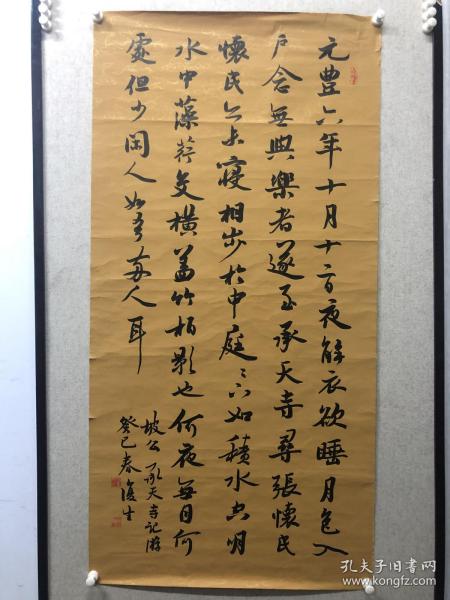 元豊六年十月十二日夜解衣欲睡月色入
户念無與樂者遂至承天寺尋張懷民
懷民亦未寝相步於中庭〻下如積水空明
水中藻荇交橫蓋竹柏影也何夜無月何
處但少閑人如吾兩人耳
坡公承天寺記游
癸巳春復生
孔夫子旧书网
www.kongfz.com